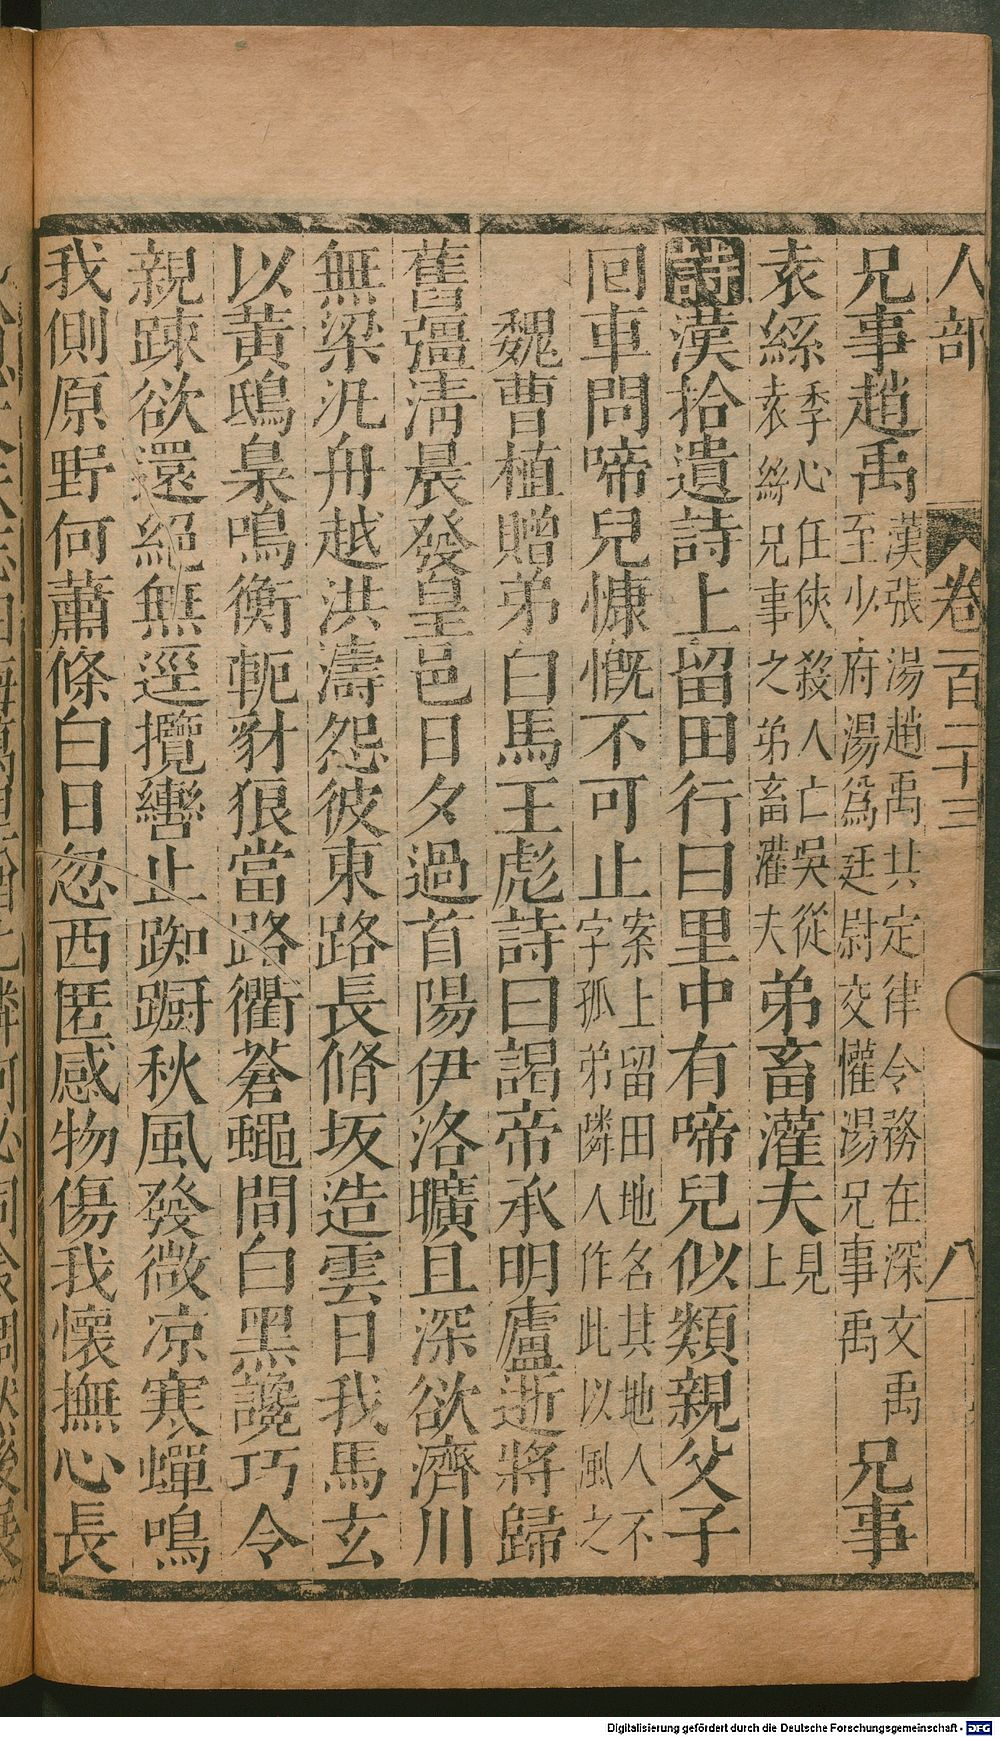 人部 卷一百二十三 八
兄事趙禹 漢張湯趙禹共定律令務在深文禹至少府湯爲廷尉交懽湯兄事禹 兄事
袁絲 季心任俠殺人亡吳從袁絲兄事之弟畜灌夫 弟畜灌夫 見上
詩 漢拾遺詩上留田行曰里中有啼兒似類親父子
回車問啼兒慷慨不可止 案上留田地名其地人不字孤弟隣人作此以風之
魏曹植贈弟白馬王彪詩曰謁帝承明廬逝將歸
舊疆淸晨發皇邑日夕過首陽伊洛曠且深欲濟川
無梁汎舟越洪濤怨彼東路長脩坂造雲日我馬玄
以黃鴟梟鳴衡軛豺狼當路衢蒼蠅間白黑讒巧令
親踈欲還絕無逕攬轡止踟蹰秋風發微凉寒蟬鳴
我側原野何蕭條白日忽西匿感物傷我懷撫心長
Digitalisierung gefördert durch die Deutsche Forschungsgemeinschaft - DFG